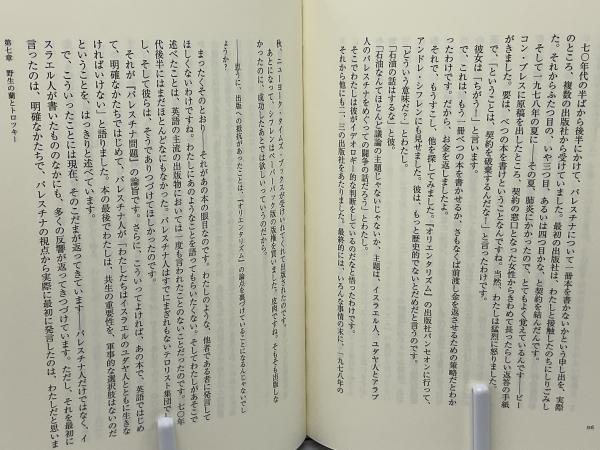 七〇年代の半ばから後半にかけて、パレスチナについて一冊本を書かないかという申し出を、実際
のところ、複数の出版社から受けていました。最初の出版社は、わたしと接触したのちにしりごみし
た。それからふたつ目の、いや三つ目、あるいは四つ目かな、と契約を結んだんです。
そして一九七八年の夏に――その夏、肺炎にかかったので、とてもよく覚えているんですが――ビー
コン・プレスに原稿を出したところ、契約の窓口となった女性からきわめて長ったらしい返答の手紙
がきました。要は、べつの本を書けということなんですね。当然、わたしは猛烈に怒りました。
で、「ということは、契約を破棄するんだな！」と言ったわけです。
彼女は「ちがう！」と言います。
で、これは、もう一冊べつの本を書かせるか、さもなくば前渡し金を返させるための策略だとわか
ったわけです。だから、お金を返しましたよ。
それで、もうすこし、他を探してみました。『オリエンタリズム』の出版社パンセオンに行って、
アンドレ・シフリンにも見せました。彼は、もっと歴史的でないとだめだと言うのです。
「どういう意味だ？」とわたし。
「石油の話はするな」と彼。
「石油なんてほとんど議論の主題じゃないじゃないか、主題は、イスラエル人、ユダヤ人とアラブ
人のパレスチナをめぐっての闘争の話だろう」とわたし。
そこでわたしは彼がイデオロギー的な判断をしているのだなと悟ったわけです。
それから他にも二、三の出版社をあたりました。最終的には、いろんな事情の末に、「一九七八年の
秋、ニューヨーク・タイムズ・ブックスが受けいれてくれて出版されたのです。
あとになって、シフレンはペーパーバック版の版権を買いました。皮肉ですね。そもそも出版しな
かったのに、成功したあとでは欲しいっていうのだから。
――思うに、出版への抵抗があったことは、『オリエンタリズム』の論点を裏づけていることになるんじゃないでし
ょうか？
まったくそのとおり――それがあの本の眼目なのです。わたしのような、他者である者に発言して
ほしくないわけですね。わたしにあのようなことを語ってもらいたくない。そしてわたしがあそこで
述べたことは、英語の主流の出版物においては一度も言われたことのないことだったのです。七〇年
代後半にはまだほとんどなにもなかった。パレスチナ人はすでにまぎれもないテロリスト集団で
し、そして彼らは、そうでありつづけてほしかったのです。
それが『パレスチナ問題』の論旨です。さらに、こういってよければ、あの本で、英語ではじめ
て、明確なかたちではじめて、パレスチナ人が「わたしたちはイスラエルのユダヤ人とともに生きな
ければいけない」と語りました。本の最後でわたしは、共生の重要性を、軍事的な選択肢はないのだ
ということを、はっきりと述べています。
で、こういったことには現在、そのこだまが返ってきています――パレスチナ人だけではなく、イ
スラエル人が書いたもののなかにも、多くの反響が返ってきつづけています。ただし、それを最初に
言ったのは、明確なかたちで、パレスチナの視点から実際に最初に発言したのは、わたしだと思いま
第七章 野生の蘭とトロツキー